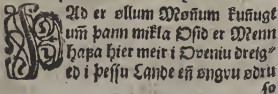 ÞAd er øllum Moñum kuñugt
um̃ þann mikla Osid er Menn
hafa hier meir i Oveniu dreig=
ed i þessu Lande eñ ǫngvu ødru
so